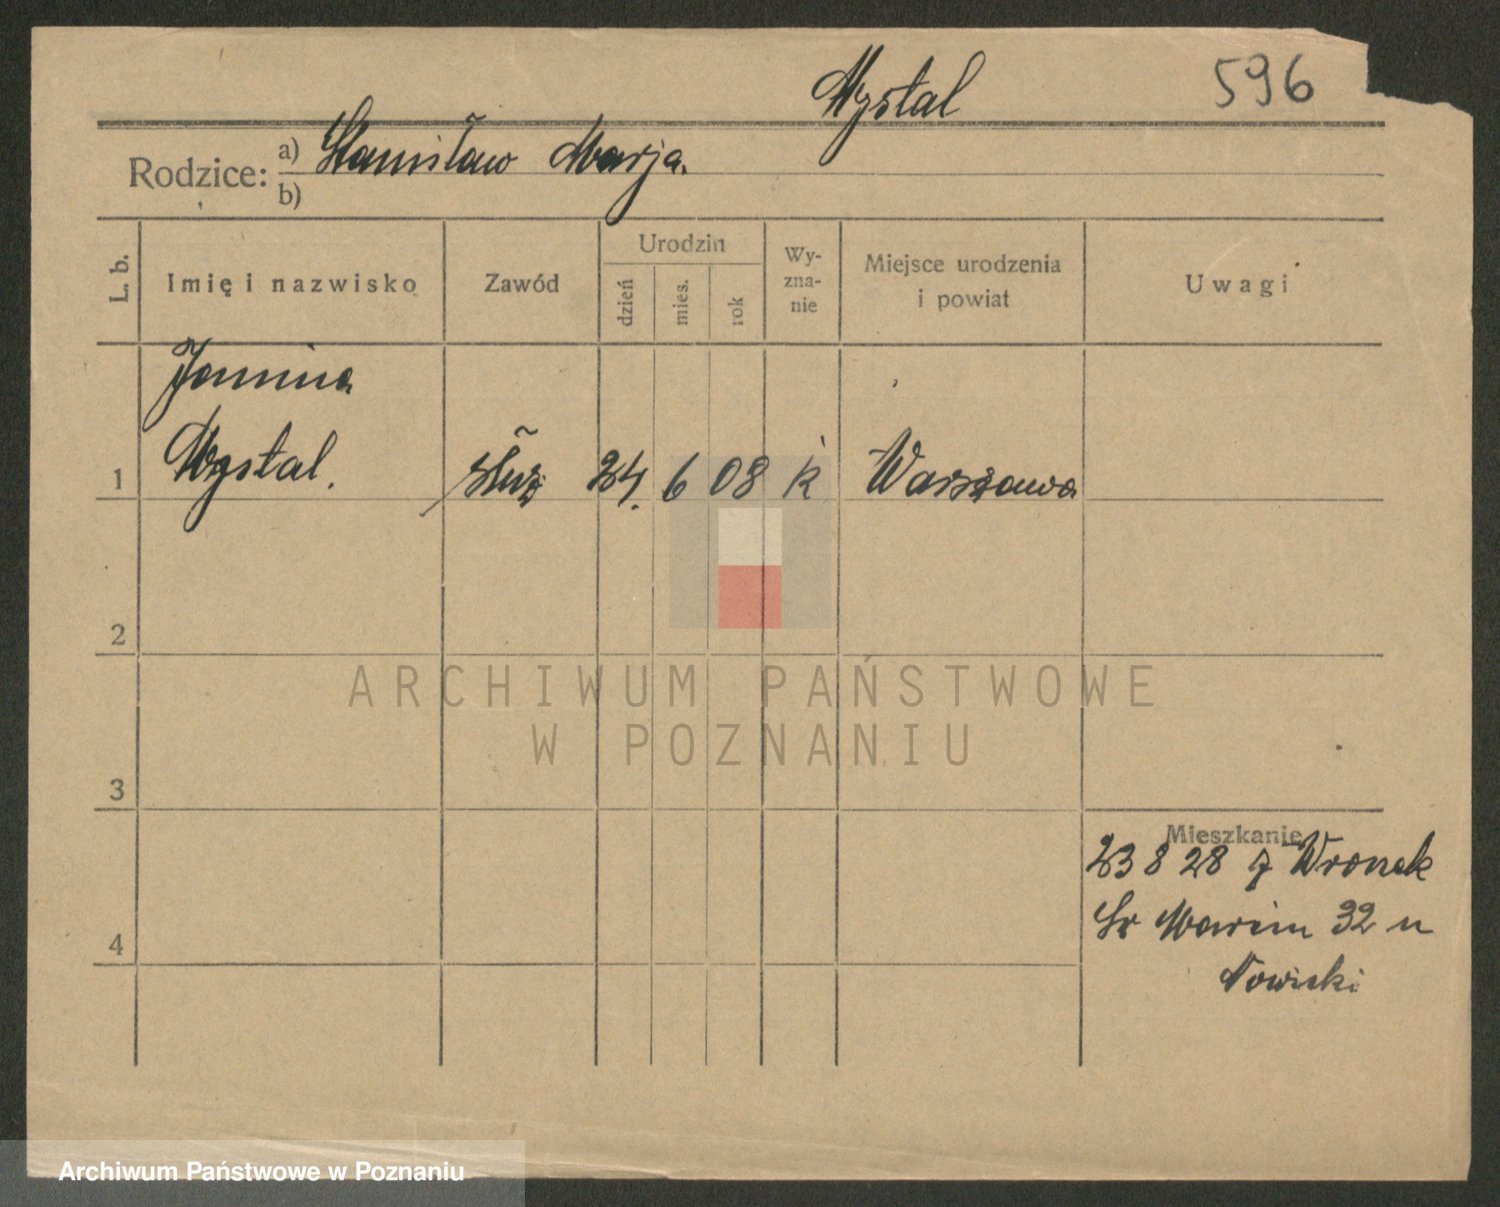 Mystal 596
Rodzice: a) Stanisław Marja.
b)
L. b. Imię i nazwisko Zawód Urodzin dzień mies. rok Wy-zna-nie Miejsce urodzenia i powiat Uwagi
Janina
1 Mystal. służ 24. 6 08 k Warszawa
2
3
Mieszkanie
23 8 28 z Wronek
Św Marcin 32 u
4
Nowicki
ARCHIWUM PAŃSTWOWE
W POZNANIU
Archiwum Państwowe w Poznaniu